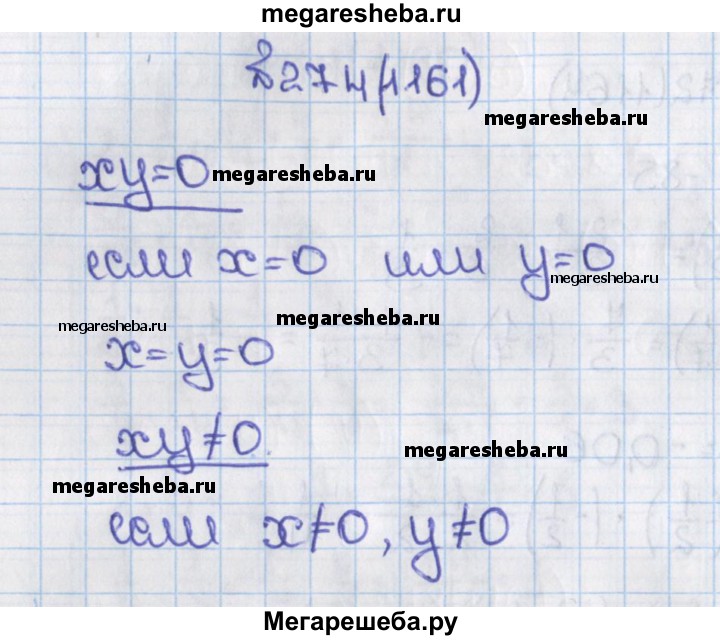 megaresheba.ru
№274(1161)
megaresheba.ru
xy=0 megaresheba.ru
если x=0 или y=0
megaresheba.ru
megaresheba.ru megaresheba.ru
x=y=0
xy≠0.
megaresheba.ru
megaresheba.ru
если x≠0, y≠0
Мегарешеба.ру